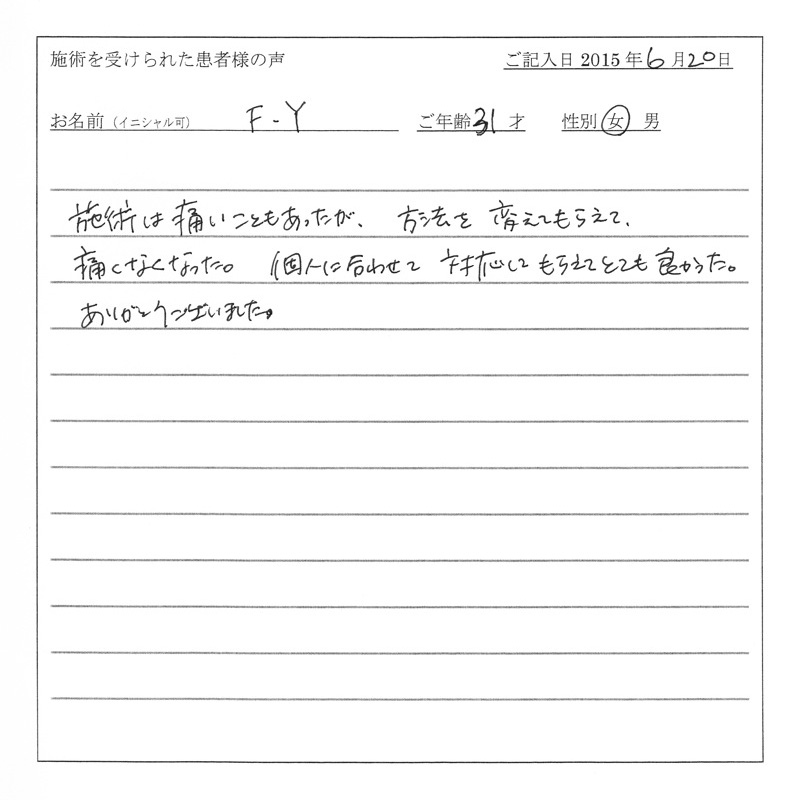 施術を受けられた患者様の声 ご記入日 2015 年 6 月 20 日
お名前（イニシャル可） F-Y ご年齢 31 才 性別 女 男
施術は痛いこともあったが、方法を変えてもらえて、
痛くなくなった。個人に合わせて対応してもらえてとても良かった。
ありがとうございました。